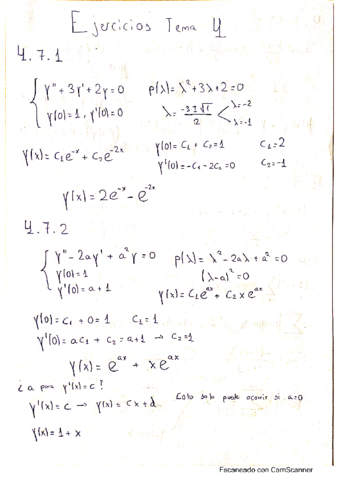 Ejercicios Tema 4
4.7.1
{ y'' + 3y' + 2y = 0    p(λ) = λ² + 3λ + 2 = 0
y(0) = 1, y'(0) = 0    λ = (-3 ± √1)/2 < λ = -2
λ = -1
y(x) = C₁e^{-x} + C₂e^{-2x}    y(0) = C₁ + C₂ = 1    C₁ = 2
y'(0) = -C₁ - 2C₂ = 0    C₂ = -1
y(x) = 2e^{-x} - e^{-2x}
4.7.2
{ y'' - 2ay' + a²y = 0    p(λ) = λ² - 2aλ + a² = 0
y(0) = 1    (λ - a)² = 0
y'(0) = a + 1    y(x) = C₁e^{ax} + C₂xe^{ax}
y(0) = C₁ + 0 = 1    C₁ = 1
y'(0) = aC₁ + C₂ = a + 1 → C₂ = 1
y(x) = e^{ax} + xe^{ax}
¿a para y'(x) = c?
y'(x) = c → y(x) = cx + d    Esto solo puede ocurrir si a = 0
y(x) = 1 + x
Escaneado con CamScanner